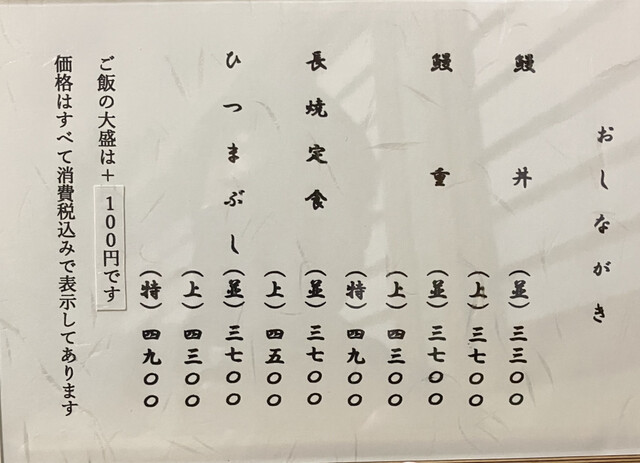 おしながき
鰻丼 (並) 三三〇〇
(上) 三七〇〇
鰻重 (並) 三七〇〇
(上) 四三〇〇
(特) 四九〇〇
長焼定食 (並) 三七〇〇
(上) 四五〇〇
ひつまぶし (並) 三七〇〇
(上) 四三〇〇
(特) 四九〇〇
ご飯の大盛は+100円です
価格はすべて消費税込みで表示してあります